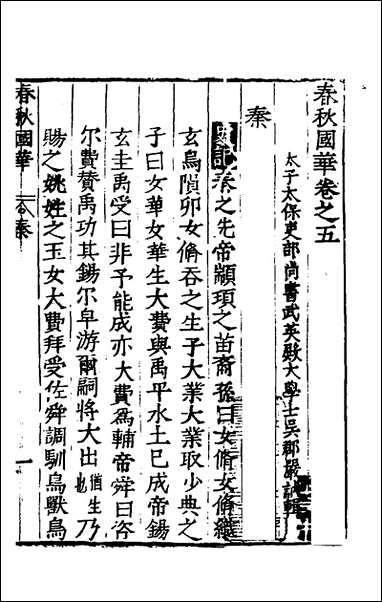 春秋國華卷之五
太子太保吏部尚書武英殿大學士吳郡嚴訥輯
秦
史記秦之先帝顓頊之苗裔孫曰女脩女脩織
玄鳥隕卵女脩吞之生子大業大業取少典之
子曰女華女華生大費與禹平水土已成帝錫
玄圭禹受曰非予能成亦大費爲輔帝舜曰咨
尔費贊禹功其錫尔皁游爾嗣將大出猶生也乃
賜之姚姓之玉女大費拜受佐舜調馴鳥獸鳥
春秋國華 秦 一